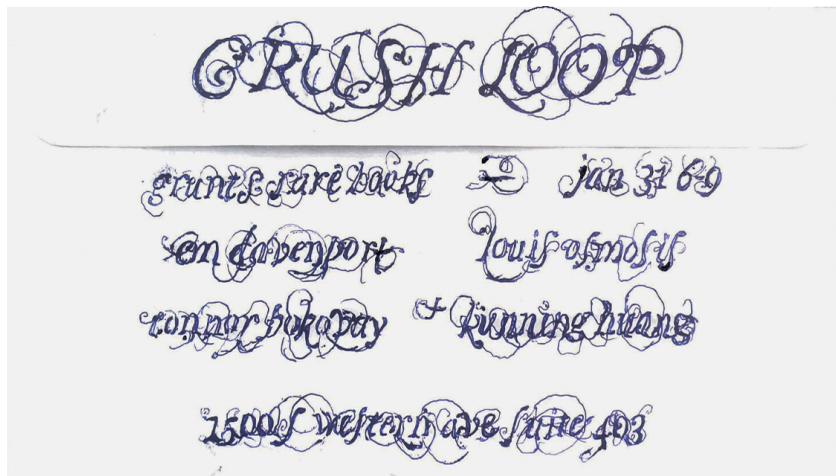 CRUSH LOOP
grunts rare books — jan 31 6-9
em davenport louis osmosis
connor bokovay + kunning huang
1500 s western ave suite 403